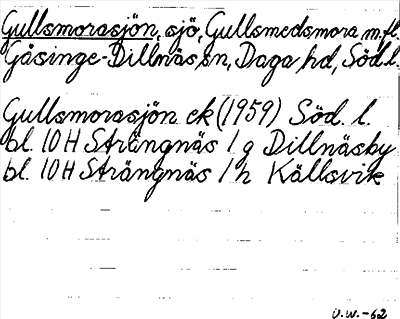 Gullsmorasjön, sjö, Gullsmedsmora m.fl.
Gåsinge-Dillnäs sn, Daga hd, Söd.l.
Gullsmorasjön ek (1959) Söd. l.
bl. 10 H Strängnäs 1 g Dillnäsby
bl. 10 H Strängnäs 1 h Källsvik
U.W.-62